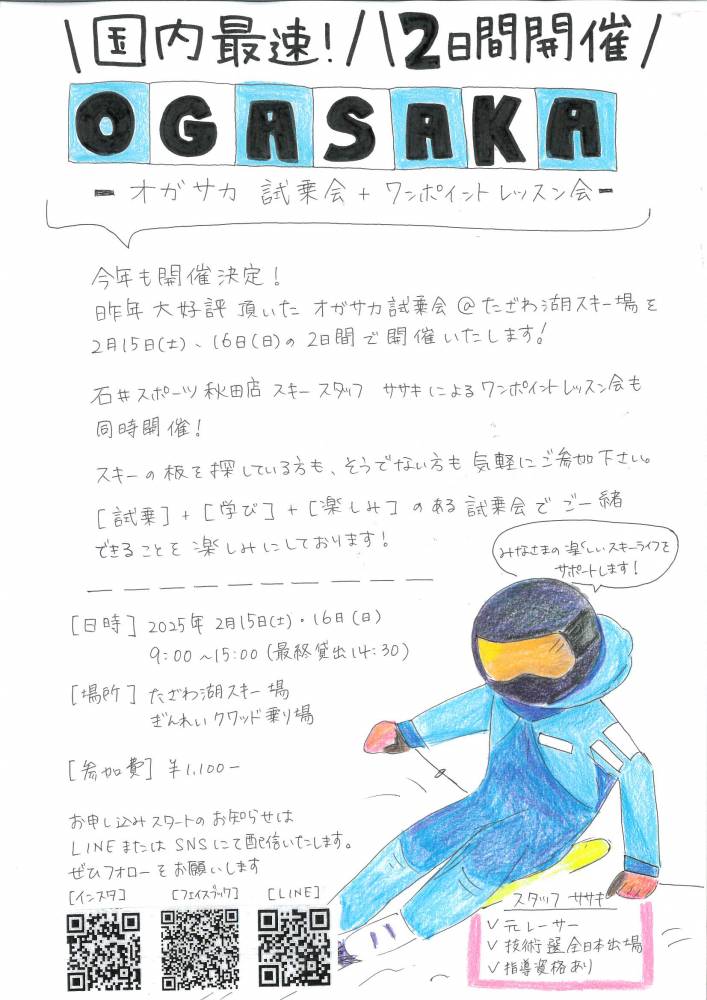 \国内最速!/\2日間開催/
OGASAKA
- オガサカ 試乗会 + ワンポイントレッスン会 -
今年も開催決定!
昨年大好評頂いた オガサカ試乗会@たざわ湖スキー場を
2月15日(土)、16日(日)の2日間で開催いたします!
石井スポーツ秋田店 スキースタッフ ササキによるワンポイントレッスン会も
同時開催!
スキーの板を探している方も、そうでない方も気軽にご参加下さい。
[試乗]+[学び]+[楽しみ]のある試乗会でご一緒
できることを楽しみにしております!
みなさまの楽しいスキーライフを
サポートします!
[日時] 2025年 2月15日(土)・16日(日)
9:00~15:00 (最終貸出14:30)
[場所] たざわ湖スキー場
ぎんれいクワッド乗り場
[参加費] ¥1,100-
お申し込みスタートのお知らせは
LINEまたはSNSにて配信いたします。
ぜひフォローをお願いします
[インスタ] [フェイスブック] [LINE]
スタッフ ササキ
✓元レーサー
✓技術選全日本出場
✓指導資格あり